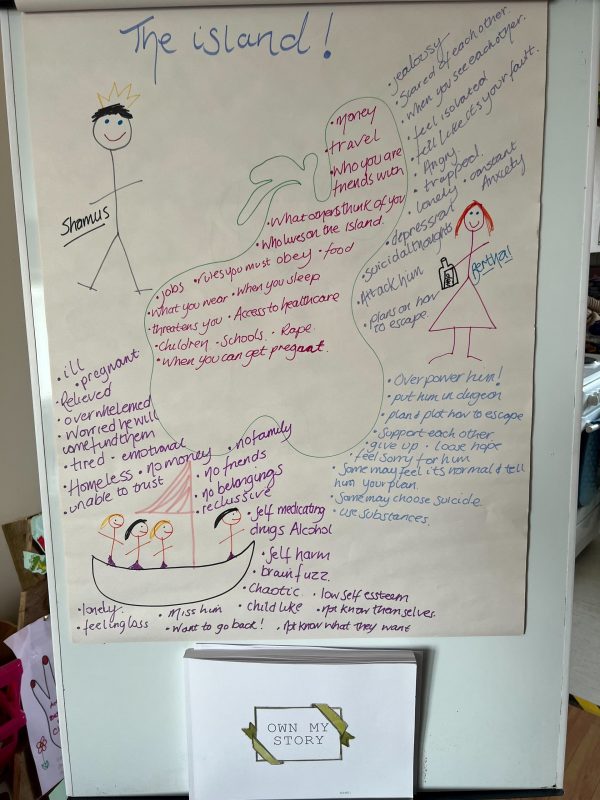 The island!
Shamus
• Money
• travel
• Who you are
friends with
• What others think of you
• Who lives on the island.
• jobs • rules you must obey • food
• What you wear • When you sleep
• threatens you • Access to healthcare
• Children • Schools • Rape.
• When you can get pregnant.
• jealousy
• Scared of each other.
• When you see each other.
• feel isolated
• fell like it's your fault.
• Angry
• trapped. • constant
Anxiety
• lonely
• depressant
• Suicidal thoughts
• Attack him
• plans on how
to escape.
Bertha!
• Overpower him!
• put him in dungeon
• plan & plot how to escape
• Support each other
• give up • loose hope
• feel sorry for him
• Some may feel its normal & tell
him your plan.
• Some may choose suicide
• use substances.
• ill
• pregnant.
• Relieved
• overwhelemed
• Worried he will
come find them
• tired • emotional
• Homeless • no money • no family
• unable to trust
• no friends
• no belongings
• reclussive
• Self medicating
drugs Alcohol
• Self harm
• brain fuzz.
• Chaotic • low self essteem
• lonely. • Miss him • child like • Not know themselves.
• feeling loss • Want to go back! • Not know what they want
OWN MY
STORY